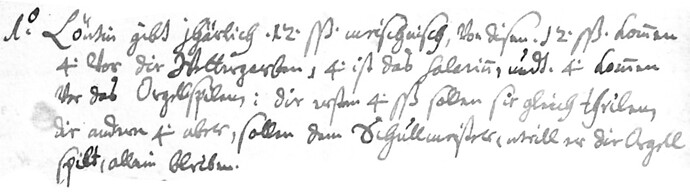 1.o Löntin gibt Jährlich .12. ß. mrischrisch, Von disen .12. ß. kommen
4. Vor die Wettergarben, 4. ist das Salarium, undt. 4. kommen
Vor das Orgelspilen; die ersten 4. ß sollen sie gleich theilen,
die andern 4. aber, sollen dem Schullmeister, weill er die Orgell
spilt, allein bleiben.